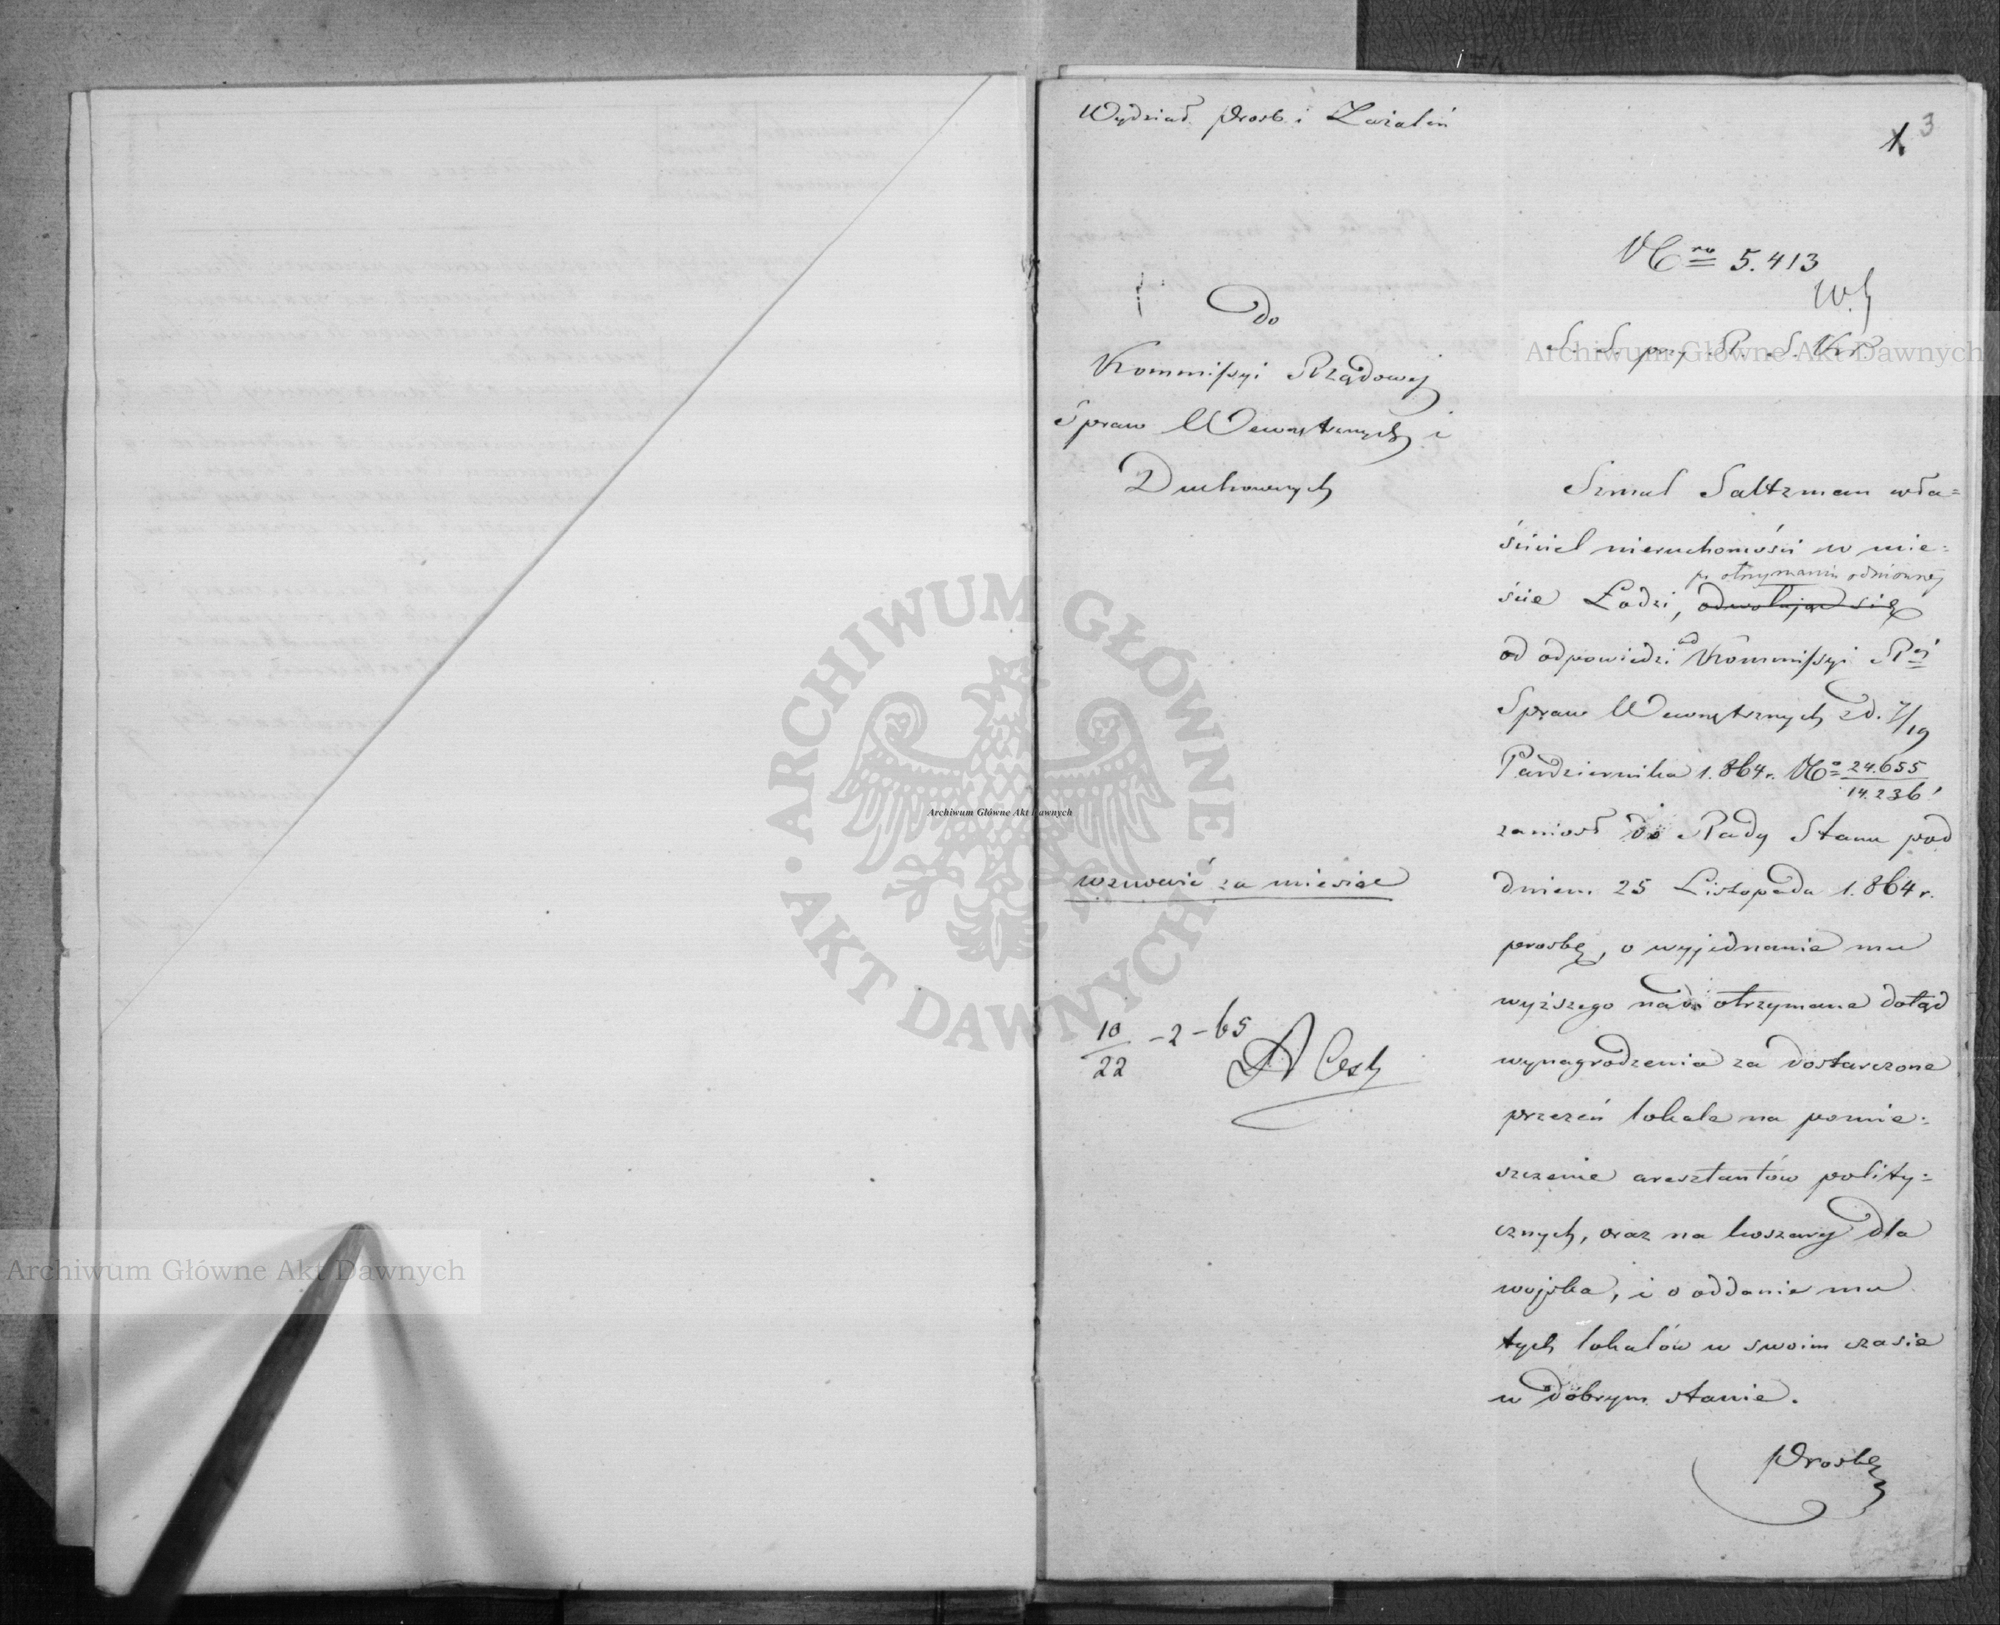 Wydział Prosb i Zażaleń
1. 3
Nro 5.413
Do
Kommissyi Rządowej
Spraw Wewnętrznych i
Duchownych
S. S. przy R. S. Kr. P.
Szmul Saltzman wła=
ściciel nieruchomości w mie=
po otrzymaniu odmownej
ście Łodzi, odwołując się
od odpowiedzi od Kommissyi Rej
Spraw Wewnętrznych z d. 7/19
Pazdziernika 1.864 r. No 24.655/14.236
zaniosł do Rady Stanu pod
dniem 25 Listopada 1.864 r.
prosbę, o wyjednanie mu
wyższego nad otrzymane dotąd
wynagrodzenia za dostarczone
przezeń lokale na pomie=
szczenie aresztantów polity=
cznych, oraz na koszary dla
wojska, i o oddanie mu
tych lokalów w swoim czasie
w dobrym stanie.
Prosbę
wznowić za miesiąc
10/22 - 2 - 65
Archiwum Główne Akt Dawnych
Archiwum Główne Akt Dawnych
Archiwum Główne Akt Dawnych
ARCHIWUM GŁÓWNE · AKT DAWNYCH ·